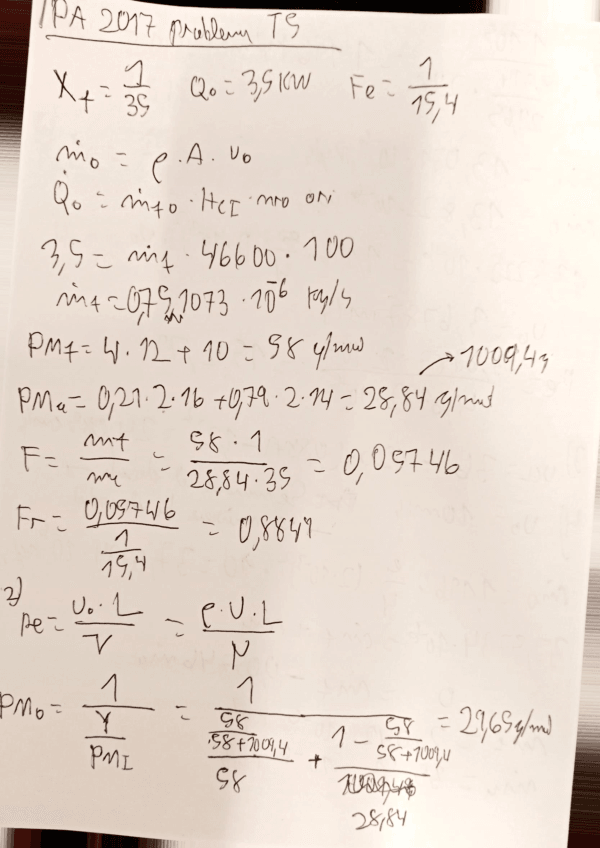 IPA 2017 problem T5
X_f = 1/35 Q_0 = 3,5 KW Fe = 1/15,4
ṁ_0 = ρ . A . U_0
Q̇_0 = ṁ_f0 . H_CI .
3,5 = ṁ_f . 46600 . 100
ṁ_f = 0,751073 . 10^-6 kg/s
PM_f = 4 . 12 + 10 = 58 g/mol → 1009,4g
PM_a = 0,21 . 2 . 16 + 0,79 . 2 . 14 = 28,84 g/mol
F = m_f/m_a = 58 . 1/28,84 . 35 = 0,05746
Fr = 0,05746/(1/15,4) = 0,8849
2)
Re = U_0 . L/ν = ρ . U . L/μ
PM_0 = 1/(Y/PM_I) = 1/((58/(58+1009,4))/58 + (1 - 58/(58+1009,4))/28,84) = 29,65 g/mol